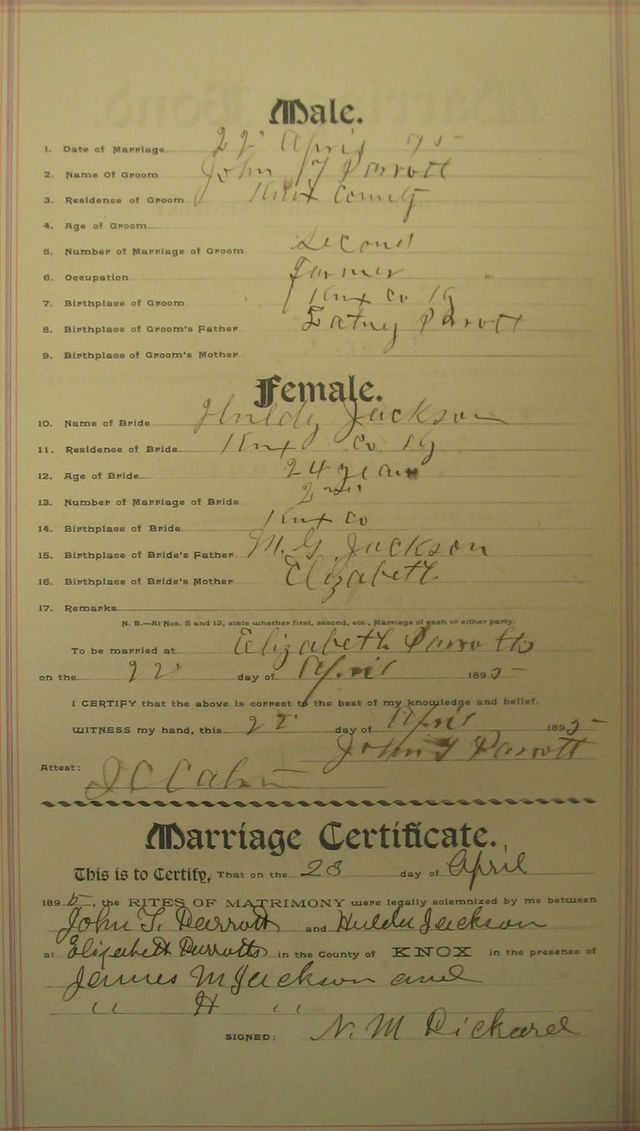 Male.
1. Date of Marriage 22" April 95
2. Name Of Groom John T Parrott
3. Residence of Groom Knox County
4. Age of Groom
5. Number of Marriage of Groom Second
6. Occupation Farmer
7. Birthplace of Groom Knx Co Ky
8. Birthplace of Groom's Father Parrott
9. Birthplace of Groom's Mother
Female.
10. Name of Bride Huldy Jackson
11. Residence of Bride Knx Co Ky
12. Age of Bride 24 years
13. Number of Marriage of Bride 2nd
14. Birthplace of Bride Knx Co
15. Birthplace of Bride's Father M. G. Jackson
16. Birthplace of Bride's Mother Elizabeth
17. Remarks
N. B.—At Nos. 5 and 13, state whether first, second, etc., Marriage of each or either party.
To be married at Elizabeth Parrotts
on the 22" day of April 1895
I CERTIFY that the above is correct to the best of my knowledge and belief.
WITNESS my hand, this 22" day of April 1895
John T Parrott
Attest:
Marriage Certificate.
This is to Certify, That on the 28 day of April
1895, the RITES OF MATRIMONY were legally solemnized by me between
John T. Parrott and Hulda Jackson
at Elizabeth Parrotts in the County of KNOX in the presence of
James M Jackson and
" H "
SIGNED: N. M Rickard